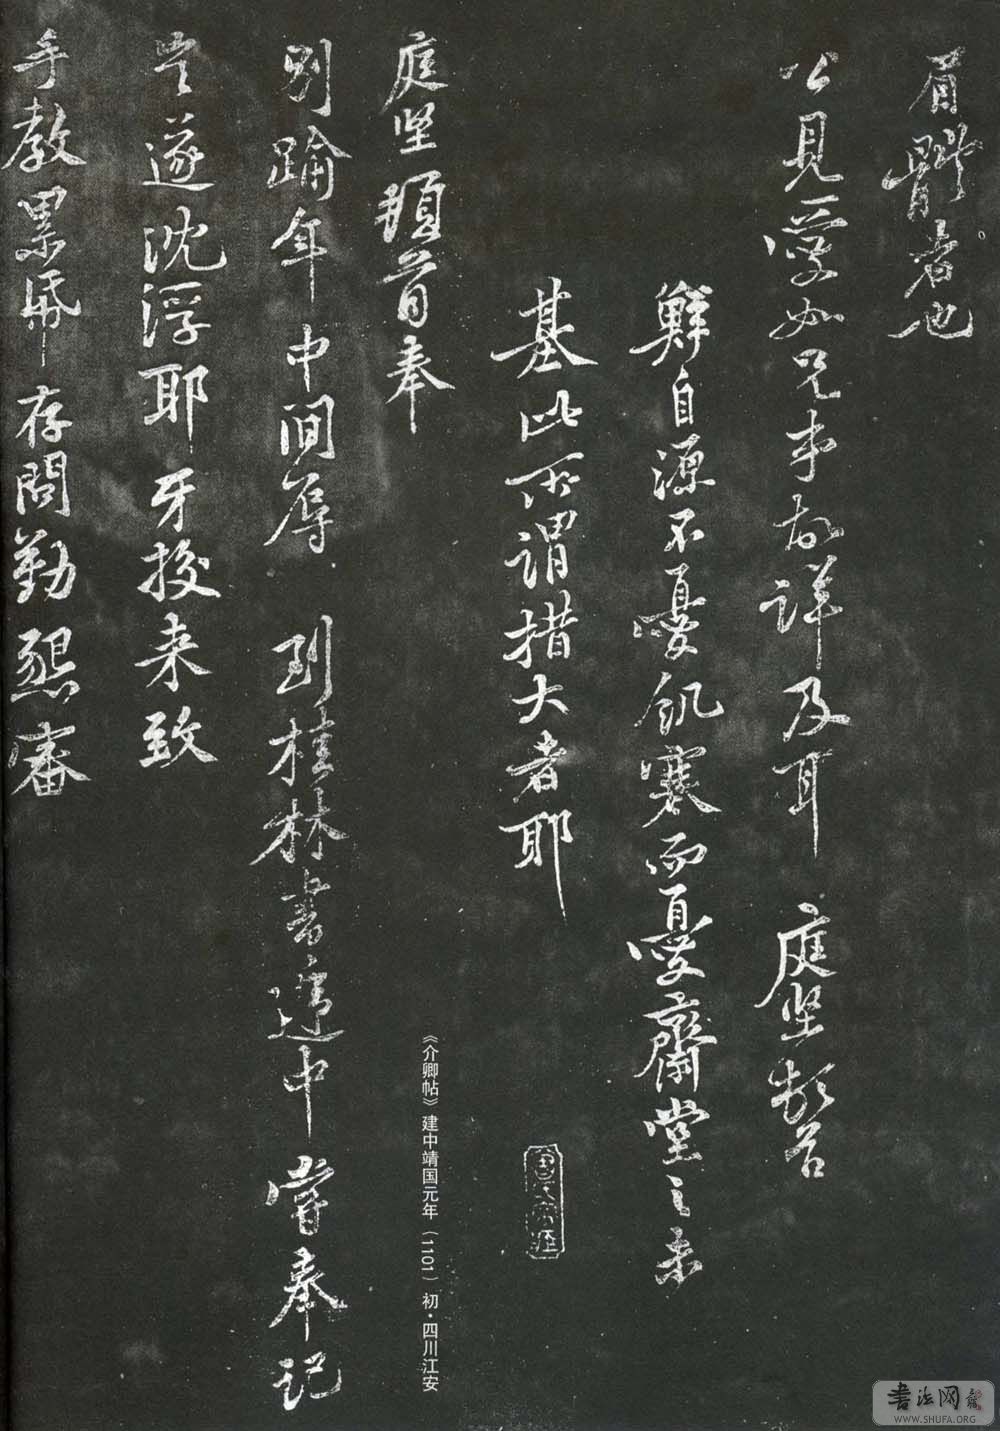 眉體者也
公見愛如兄弟故詳及耳 庭堅頓首
鮮自源不憂飢寒而憂齋堂之未
基此所謂措大者耶
庭堅頓首奉
別踰年中間辱 到桂林書遞中嘗奉記
豈遂沈浮耶牙挍来致
手教累紙存問勤懇審
《介卿帖》建中靖国元年(1101)初·四川江安
书法网
WWW.SHUFA.ORG